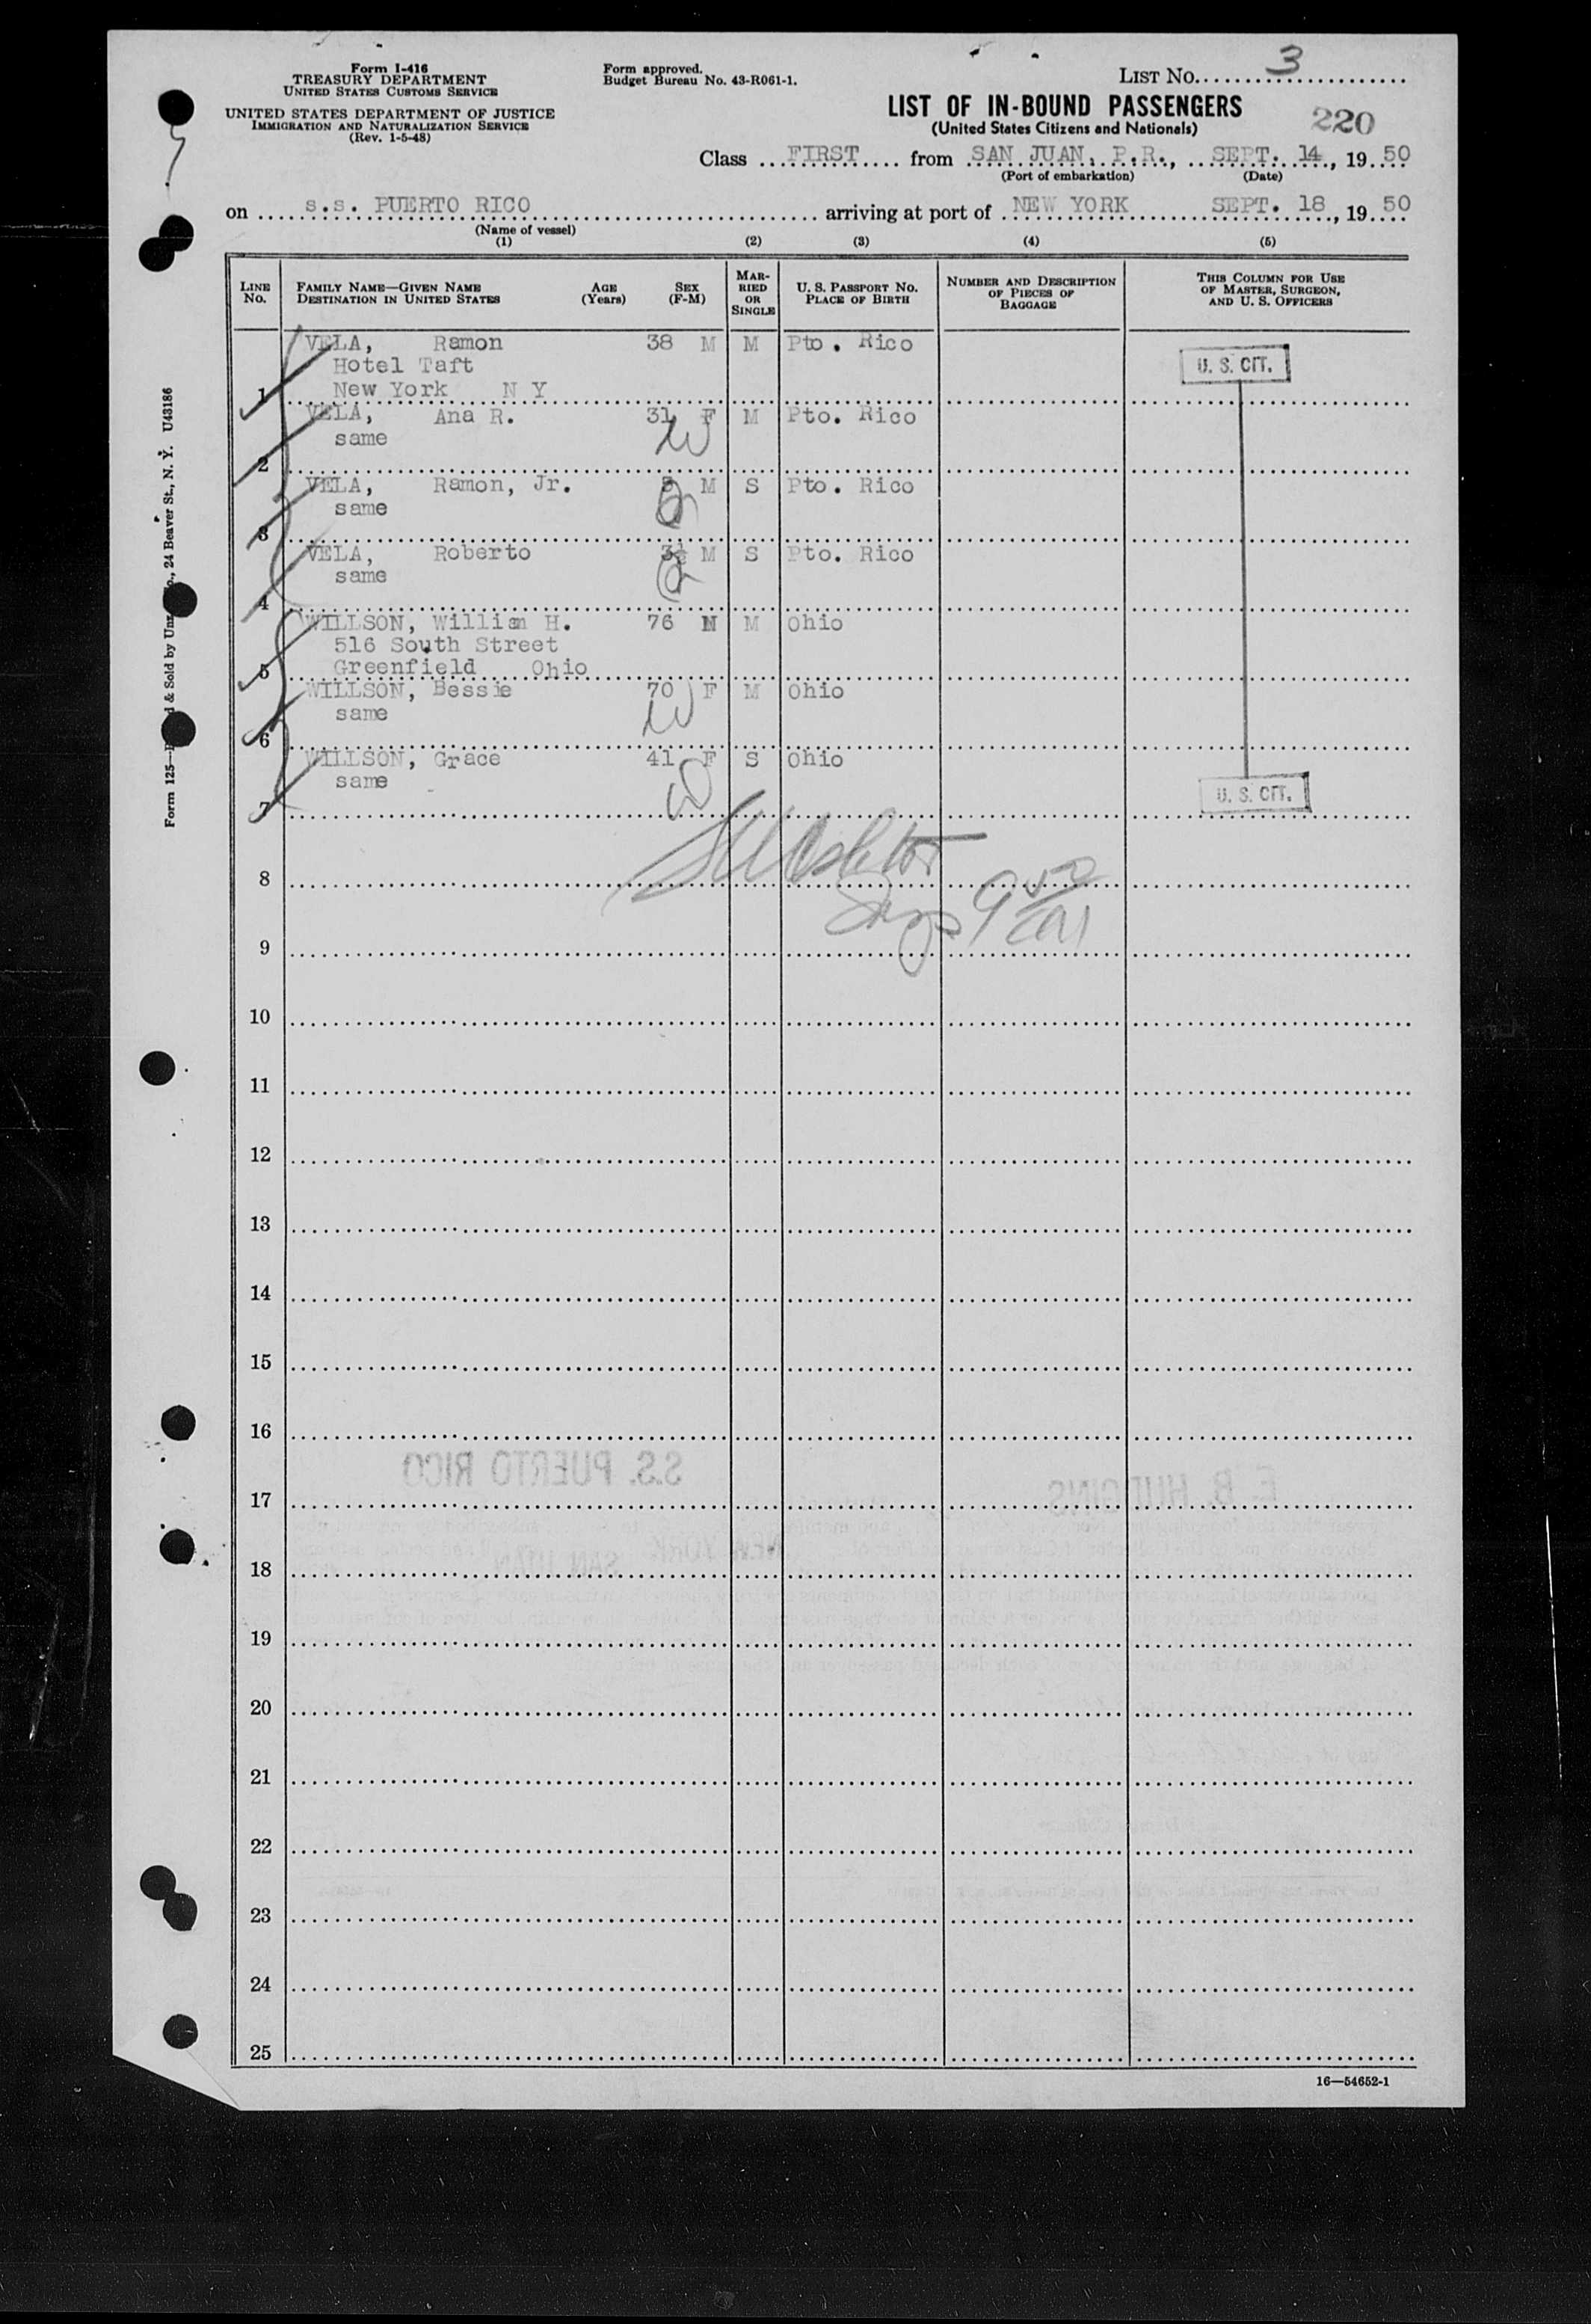 Form I-416
TREASURY DEPARTMENT
UNITED STATES CUSTOMS SERVICE
UNITED STATES DEPARTMENT OF JUSTICE
IMMIGRATION AND NATURALIZATION SERVICE
(Rev. 1-5-48)
Form approved.
Budget Bureau No. 43-R061-1.
LIST No. 3
LIST OF IN-BOUND PASSENGERS
(United States Citizens and Nationals)
220
Class FIRST from SAN JUAN, P.R., SEPT. 14, 19 50
(Port of embarkation) (Date)
on s.s. PUERTO RICO arriving at port of NEW YORK SEPT. 18, 19 50
(Name of vessel)
(1) (2) (3) (4) (5)
LINE No. FAMILY NAME—GIVEN NAME DESTINATION IN UNITED STATES AGE (Years) SEX (F-M) MARRIED OR SINGLE U. S. PASSPORT NO. PLACE OF BIRTH NUMBER AND DESCRIPTION OF PIECES OF BAGGAGE THIS COLUMN FOR USE OF MASTER, SURGEON, AND U. S. OFFICERS
VELA, Ramon 38 M M Pto. Rico U. S. CIT.
Hotel Taft
1 New York N Y
VELA, Ana R. 31 F M Pto. Rico
same
2
VELA, Ramon, Jr. M S Pto. Rico
same
3
VELA, Roberto 3½ M S Pto. Rico
same
4
WILLSON, William H. 76 M M Ohio
516 South Street
5 Greenfield Ohio
WILLSON, Bessie 70 F M Ohio
same
6
WILLSON, Grace 41 F S Ohio
same U. S. CIT.
7
8
9
10
11
12
13
14
15
16
S.S. PUERTO RICO E. B. HUDGINS
17
NEW YORK SAN JUAN
18
19
20
21
22
23
24
25
16—54652-1
24 Beaver St., N. Y. U43186
Form 125
& Sold by